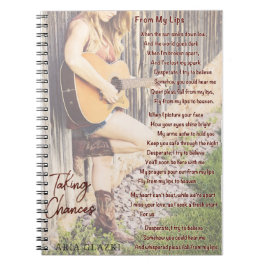 From My Lips
When the sun sinks down low,
And the world goes dark
When I'm broken apart,
And I've lost my spark
Desperate I try to believe
Somehow, you could hear me
Quiet pleas fall from my lips,
Fly from my lips to heaven.
When I picture your face
How your eyes shine bright
My arms ache to hold you
Keep you safe through the night
Desperate I try to believe
You'll soon be here with me
My prayers pour out from my lips
Fly from my lips to heaven
My heart can't beat, while we're apart
I miss your love, as I seek a fresh start
For us
Desperate, I try to believe
Somehow you could hear me
And whispered pleas fall from my lips
Taking
Chances
ARIA GLAZKI